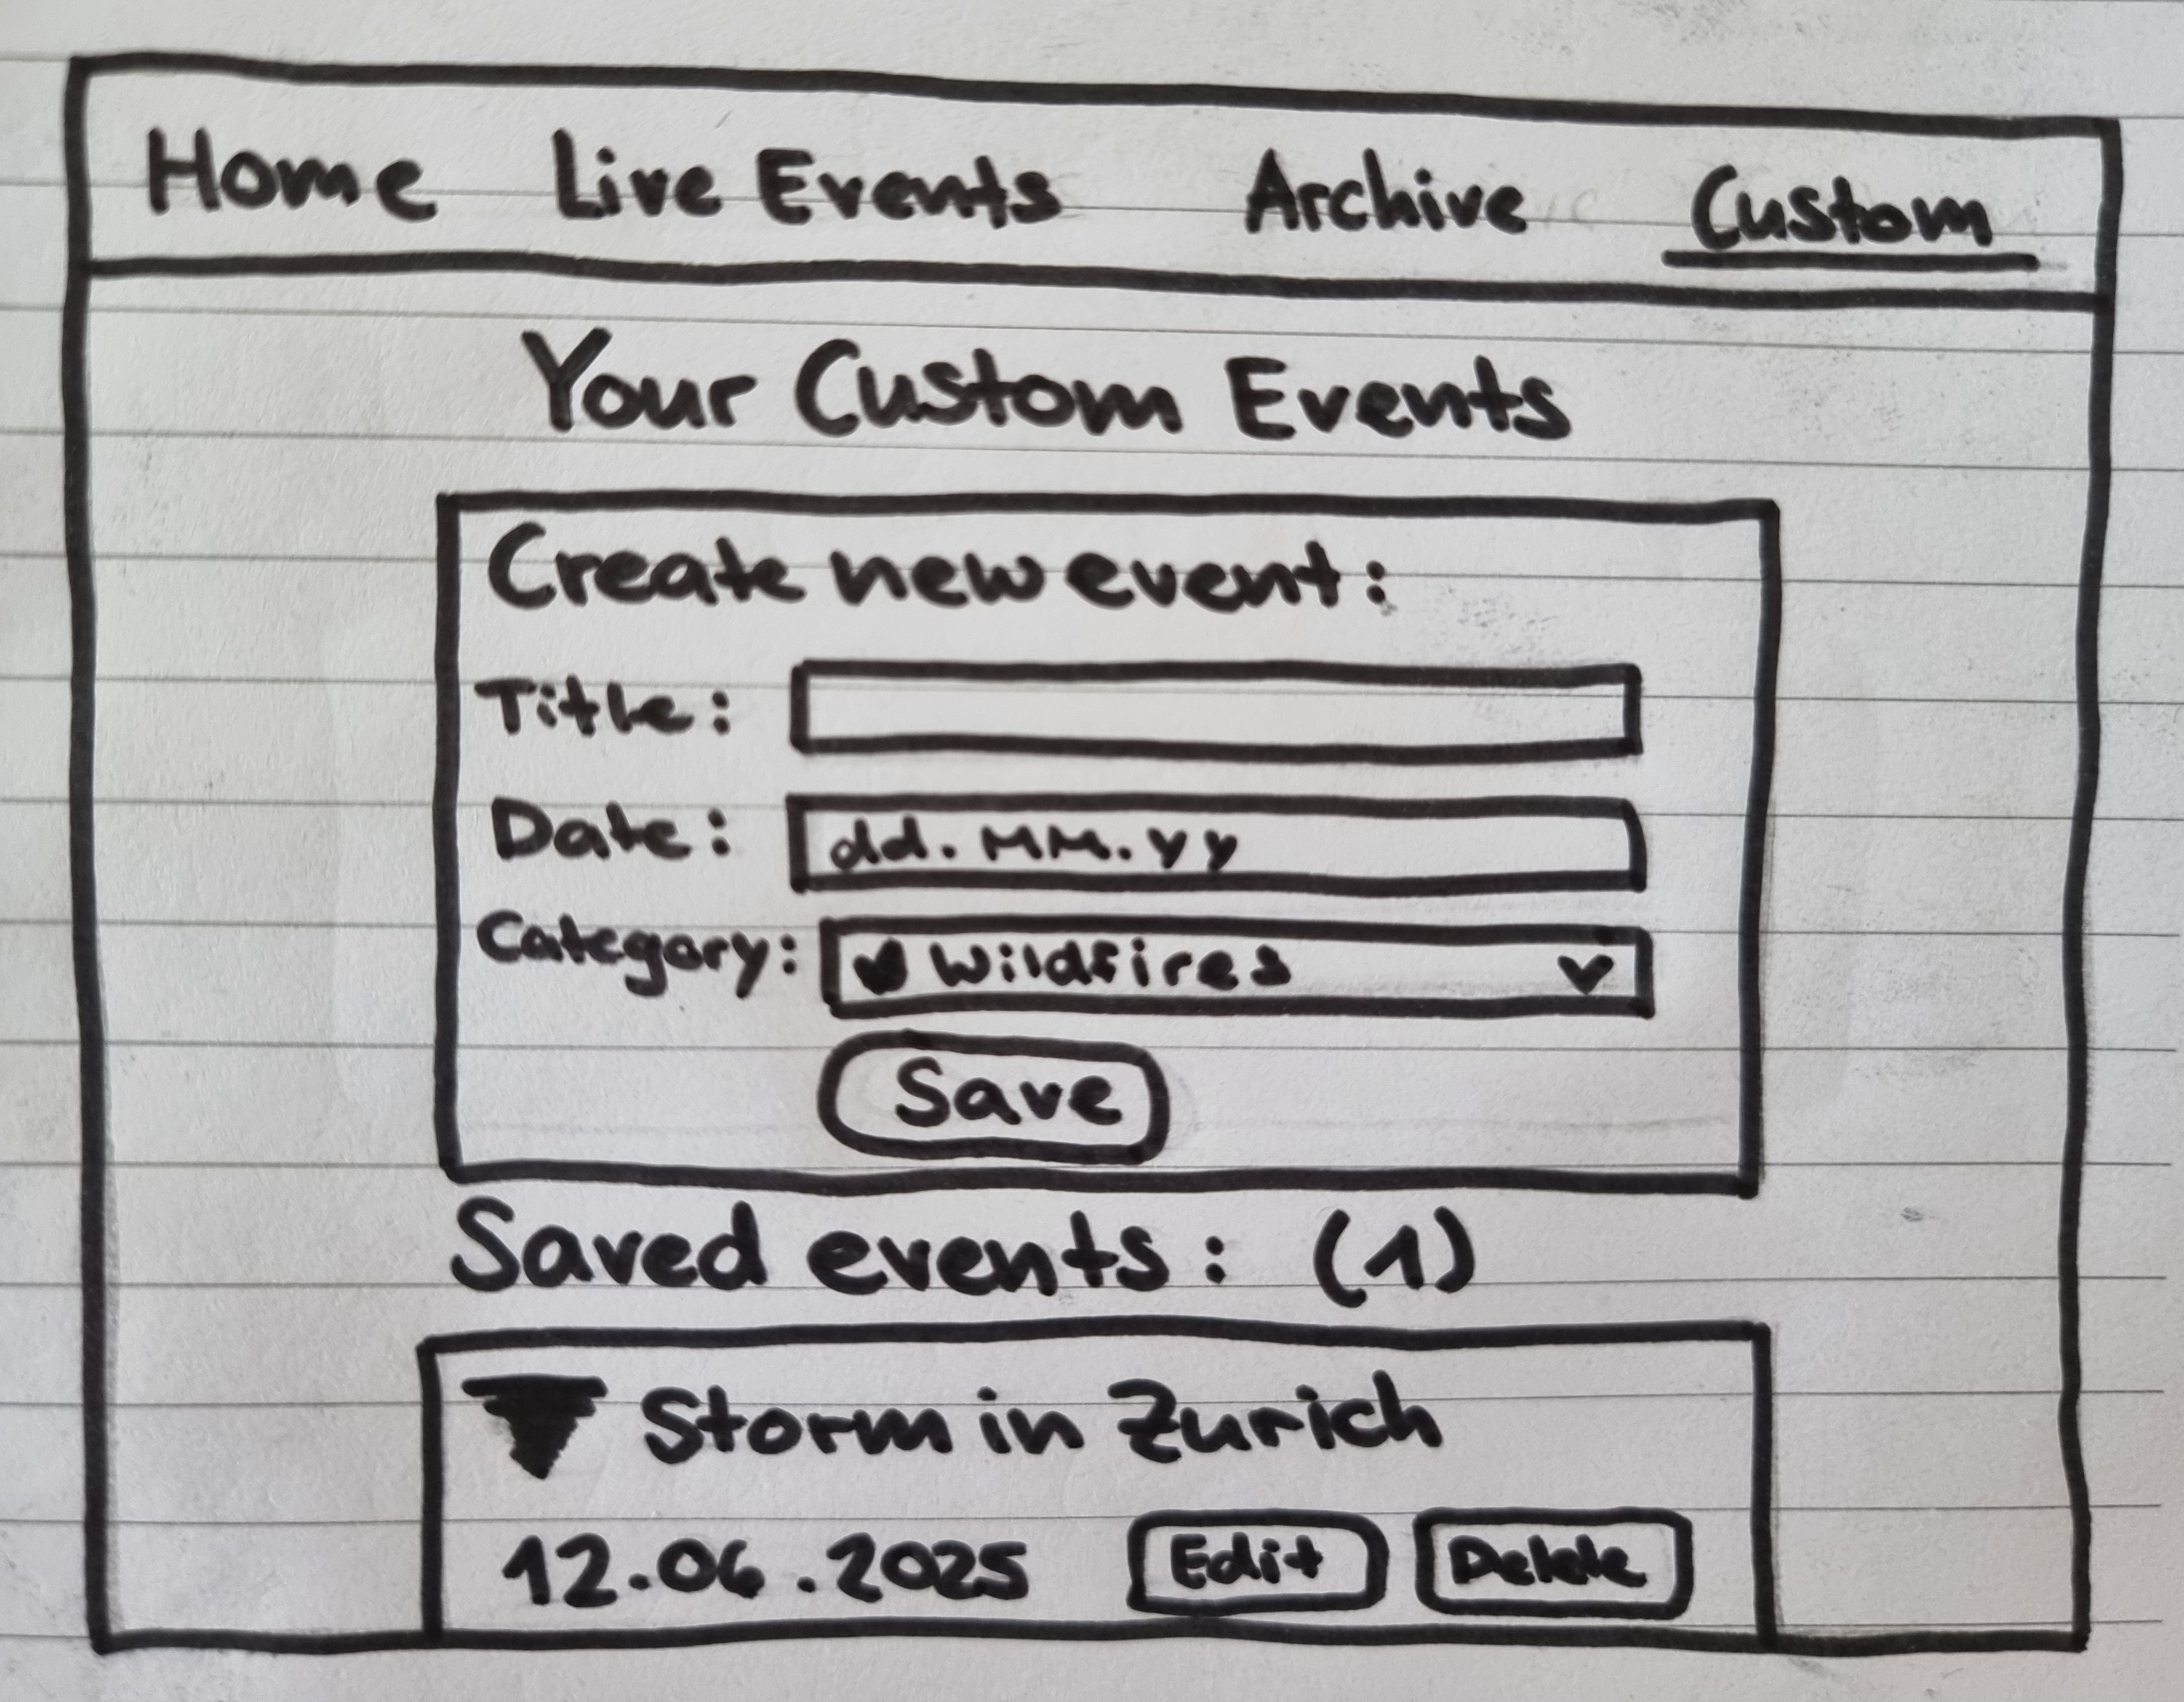 Home Live Events Archive Custom
Your Custom Events
Create new event:
Title:
Date: dd.MM.yy
Category: Wildfires
Save
Saved events: (1)
Storm in Zurich
12.06.2025 Edit Delete